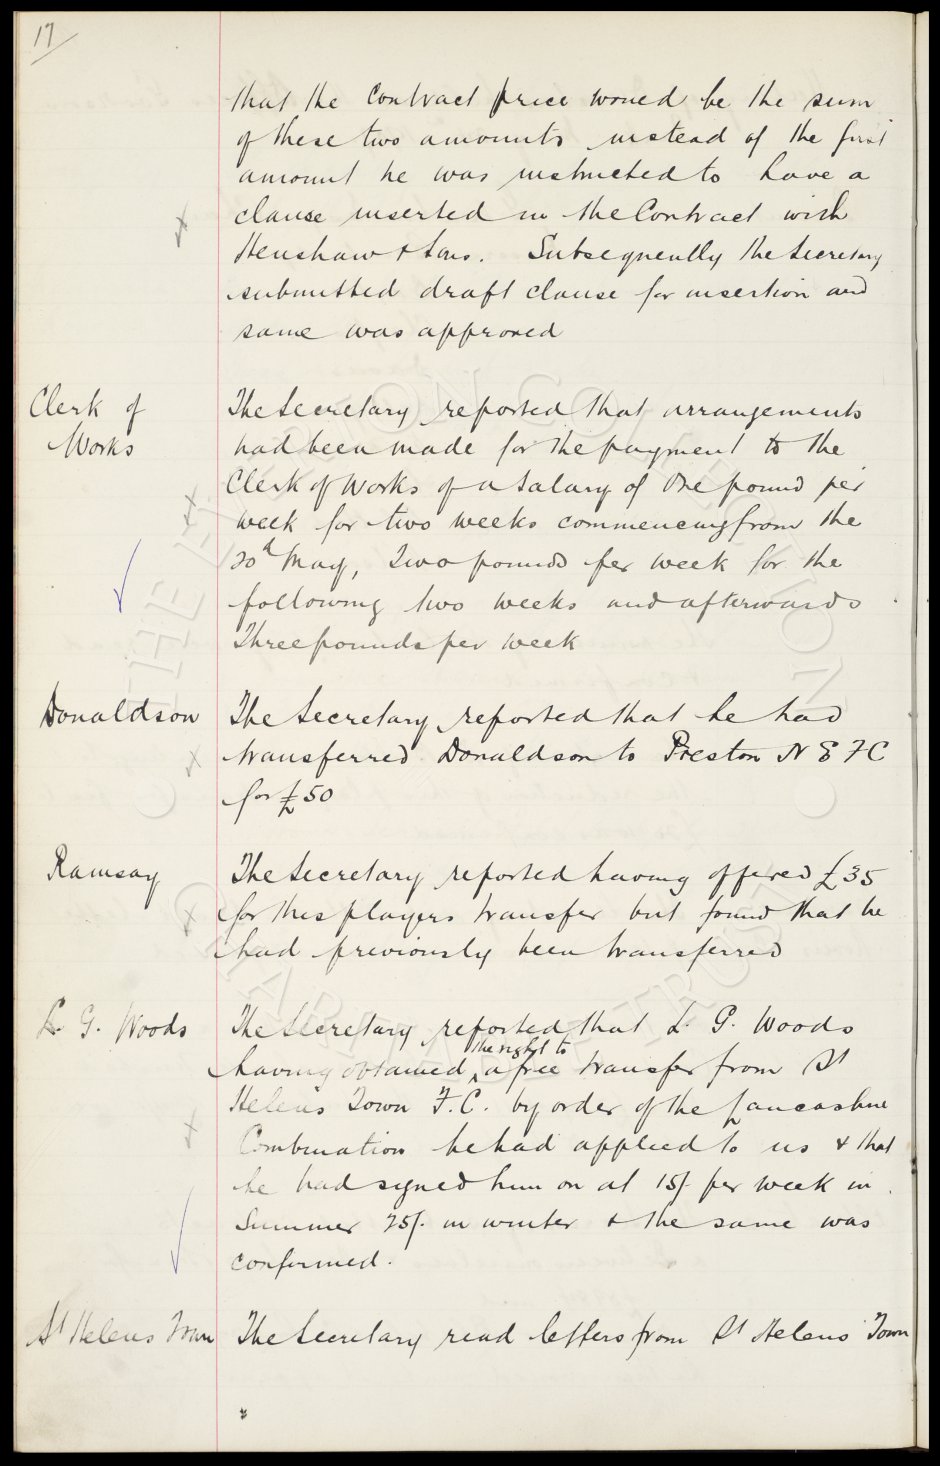 17
that the Contract price would be the sum
of these two amounts instead of the first
amount he was instructed to have a
clause inserted in the Contract with
Henshaw & Sons. Subsequently the Secretary
submitted draft clause for insertion and
same was approved
Clerk of
Works
The Secretary reported that arrangements
had been made for the payment to the
Clerk of Works of a Salary of One pound per
week for two weeks commencing from the
20th May, Two pounds per week for the
following two weeks and afterwards
Three pounds per week
Donaldson
The Secretary reported that he had
transferred Donaldson to Preston N E F C
for £50
Ramsay
The Secretary reported having offered £35
for this players transfer but found that he
had previously been transferred
L. G. Woods
The Secretary reported that L. G. Woods
having obtained the right to a free transfer from St
Helens Town F.C. by order of the Lancashire
Combination he had applied to us & that
he had signed him on at 15/- per week in
Summer 25/- in winter & the same was
confirmed.
St Helens Town
The Secretary read letters from St Helens Town
© THE EVERTON COLLECTION
CHARITABLE TRUST